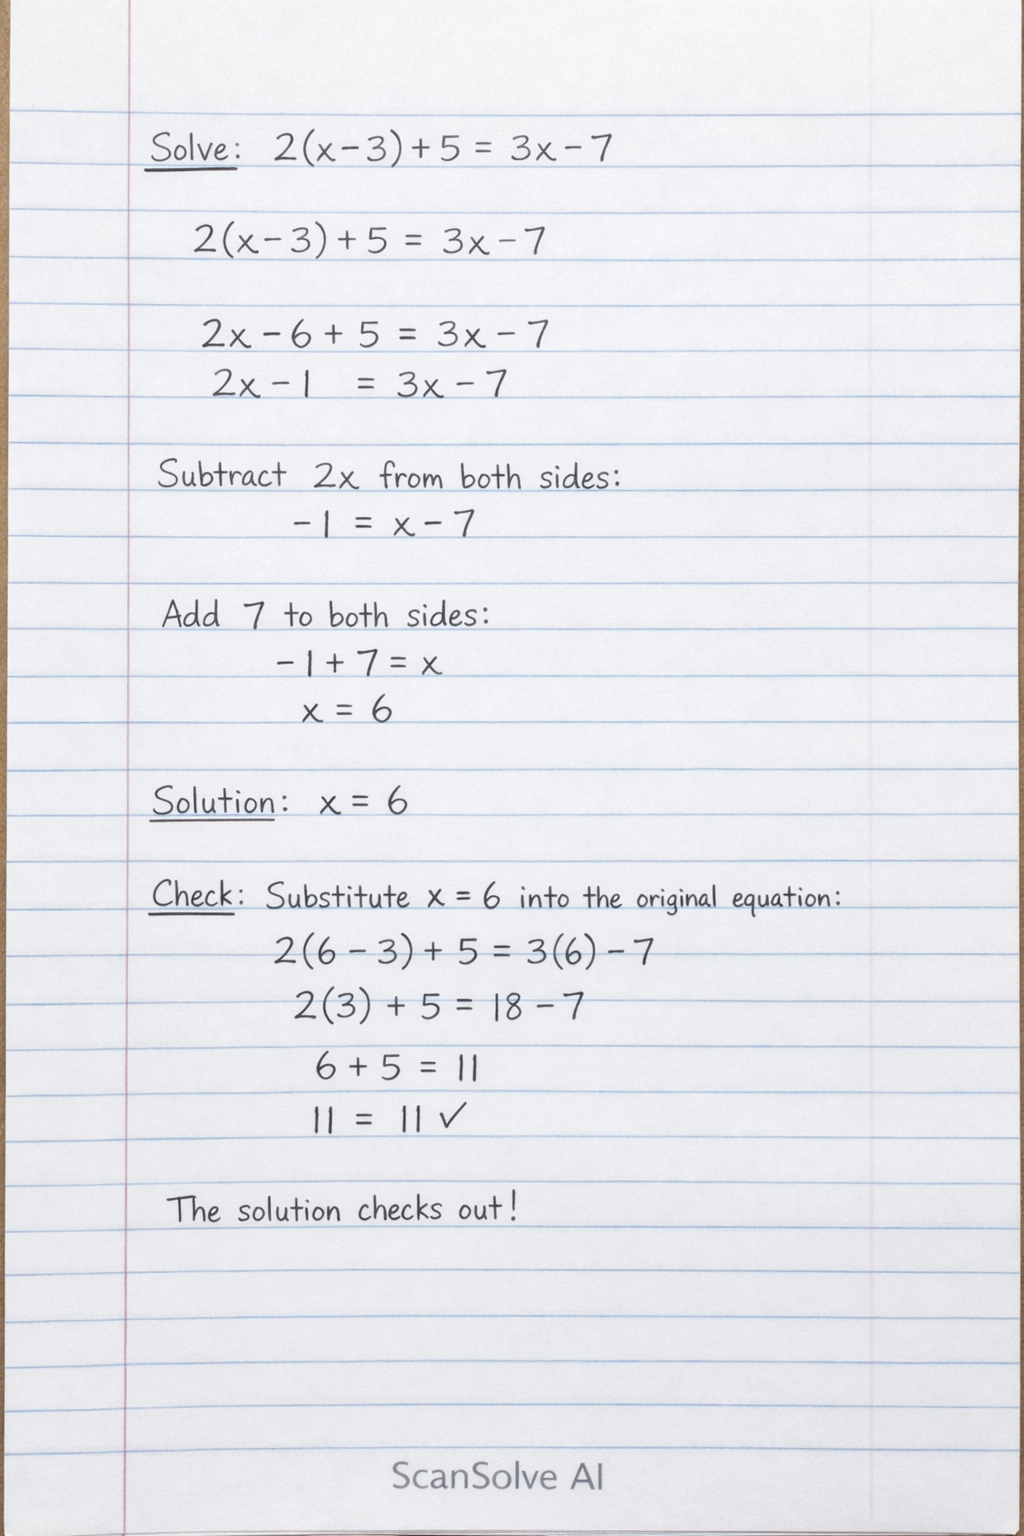 Solve: 2(x-3)+5 = 3x-7
2(x-3)+5 = 3x-7
2x-6+5 = 3x-7
2x-1 = 3x-7
Subtract 2x from both sides:
-1 = x-7
Add 7 to both sides:
-1+7 = x
x = 6
Solution: x = 6
Check: Substitute x = 6 into the original equation:
2(6-3)+5 = 3(6)-7
2(3)+5 = 18-7
6+5 = 11
11 = 11 ✓
The solution checks out!
ScanSolve AI